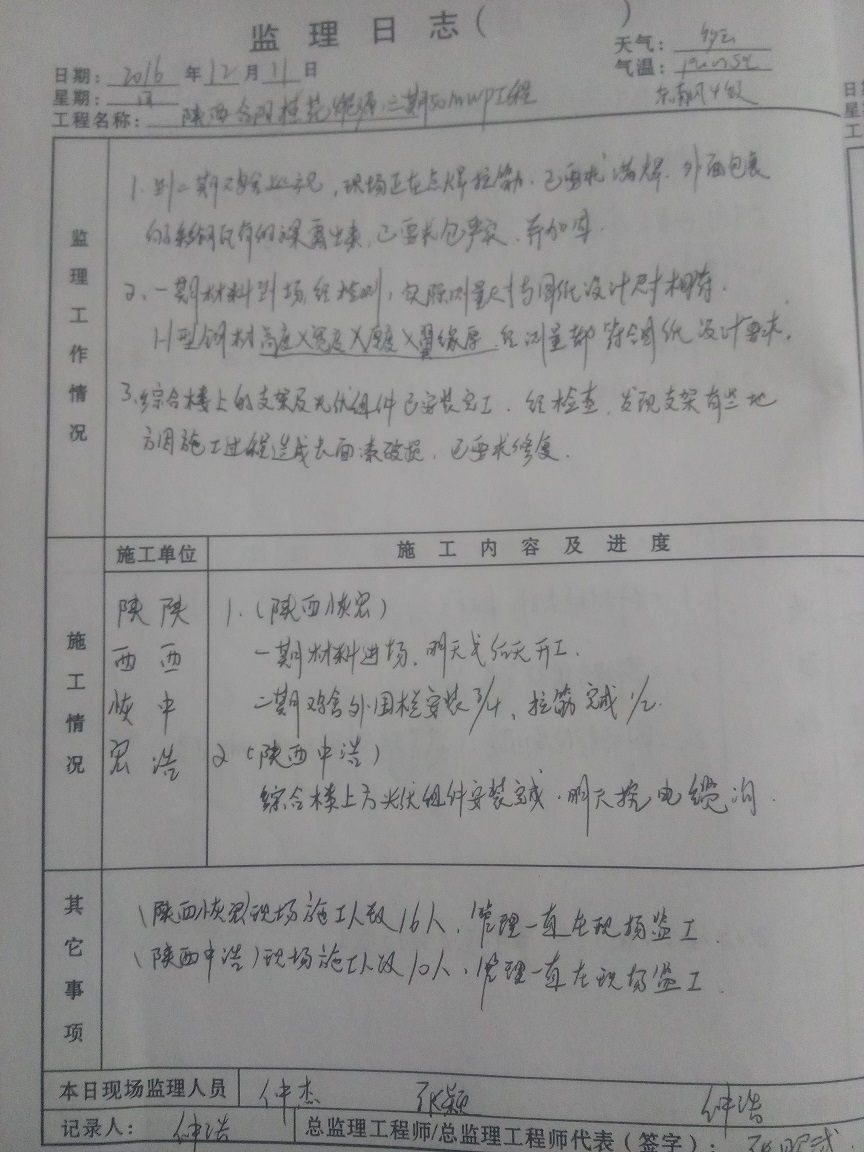 监理日志( )
天气: 多云
日期: 2016 年 12 月 11 日
气温:
星期: 日
东南风4级
工程名称: 陕西合阳桂花能源二期50MWP工程
监理工作情况
1.到二期鸡舍上巡视,现场正在点焊拉筋.已要求满焊.外面包裹
的彩钢瓦有的裸露出来,已要求包严实,并加固.
2、一期材料到场,经检测,实际测量尺寸与图纸设计尺寸相符.
H型钢材高度X宽度X厚度X翼缘厚.经测量都符合图纸设计要求.
3、综合楼上的支架及光伏组件已安装完工.经检查,发现支架有些地
方因施工过程造成表面漆破损,已要求修复.
施工单位 施工内容及进度
施工情况
陕西恢宏
陕西中浩
1.(陕西恢宏)
一期材料进场,明天或后天开工.
二期鸡舍外围栏安装3/4、拉筋完成1/2.
2(陕西中浩)
综合楼上方光伏组件安装完成.明天挖电缆沟.
其它事项
(陕西恢宏)现场施工人数16人,管理一直在现场监工.
(陕西中浩)现场施工人数10人,管理一直在现场监工.
本日现场监理人员 仲杰 张颖 仲浩
记录人: 仲浩 总监理工程师/总监理工程师代表(签字):